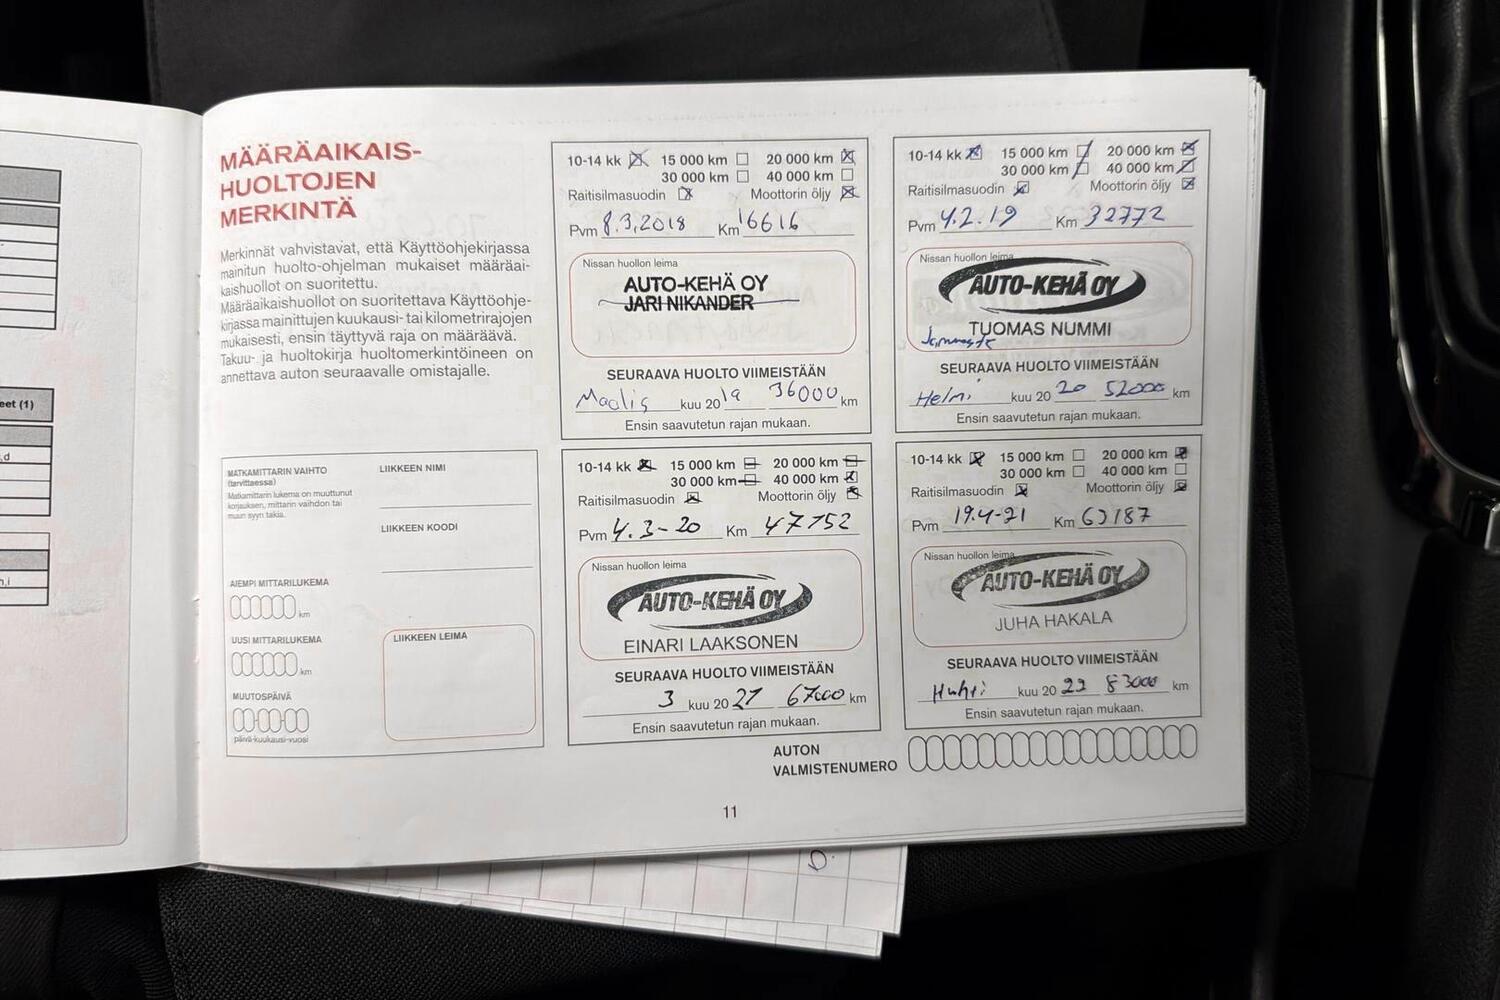 MÄÄRÄAIKAIS-
HUOLTOJEN
MERKINTÄ
Merkinnät vahvistavat, että Käyttöohjekirjassa
mainitun huolto-ohjelman mukaiset määräai-
kaishuollot on suoritettu.
Määräaikaishuollot on suoritettava Käyttöohje-
kirjassa mainittujen kuukausi- tai kilometrirajojen
mukaisesti, ensin täyttyvä raja on määräävä.
Takuu- ja huoltokirja huoltomerkintöineen on
annettava auton seuraavalle omistajalle.
MATKAMITTARIN VAIHTO
(tarvittaessa)
Matkamittarin lukema on muuttunut
korjauksen, mittarin vaihdon tai
muun syyn takia.
AIEMPI MITTARILUKEMA
km
UUSI MITTARILUKEMA
km
MUUTOSPÄIVÄ
päivä-kuukausi-vuosi
LIIKKEEN NIMI
LIIKKEEN KOODI
LIIKKEEN LEIMA
10-14 kk 15 000 km 20 000 km
30 000 km 40 000 km
Raitisilmasuodin Moottorin öljy
Pvm 8.3.2018 Km 16616
Nissan huollon leima
AUTO-KEHÄ OY
JARI NIKANDER
SEURAAVA HUOLTO VIIMEISTÄÄN
Maalis kuu 2019 36000 km
Ensin saavutetun rajan mukaan.
10-14 kk 15 000 km 20 000 km
30 000 km 40 000 km
Raitisilmasuodin Moottorin öljy
Pvm 4.2.19 Km 32772
Nissan huollon leima
AUTO-KEHÄ OY
TUOMAS NUMMI
SEURAAVA HUOLTO VIIMEISTÄÄN
Helmi kuu 20 20 52000 km
Ensin saavutetun rajan mukaan.
10-14 kk 15 000 km 20 000 km
30 000 km 40 000 km
Raitisilmasuodin Moottorin öljy
Pvm 4.3-20 Km 47152
Nissan huollon leima
AUTO-KEHÄ OY
EINARI LAAKSONEN
SEURAAVA HUOLTO VIIMEISTÄÄN
3 kuu 20 21 67000 km
Ensin saavutetun rajan mukaan.
10-14 kk 15 000 km 20 000 km
30 000 km 40 000 km
Raitisilmasuodin Moottorin öljy
Pvm 19.4-21 Km 63187
Nissan huollon leima
AUTO-KEHÄ OY
JUHA HAKALA
SEURAAVA HUOLTO VIIMEISTÄÄN
Huhti kuu 20 22 83000 km
Ensin saavutetun rajan mukaan.
AUTON
VALMISTENUMERO
11